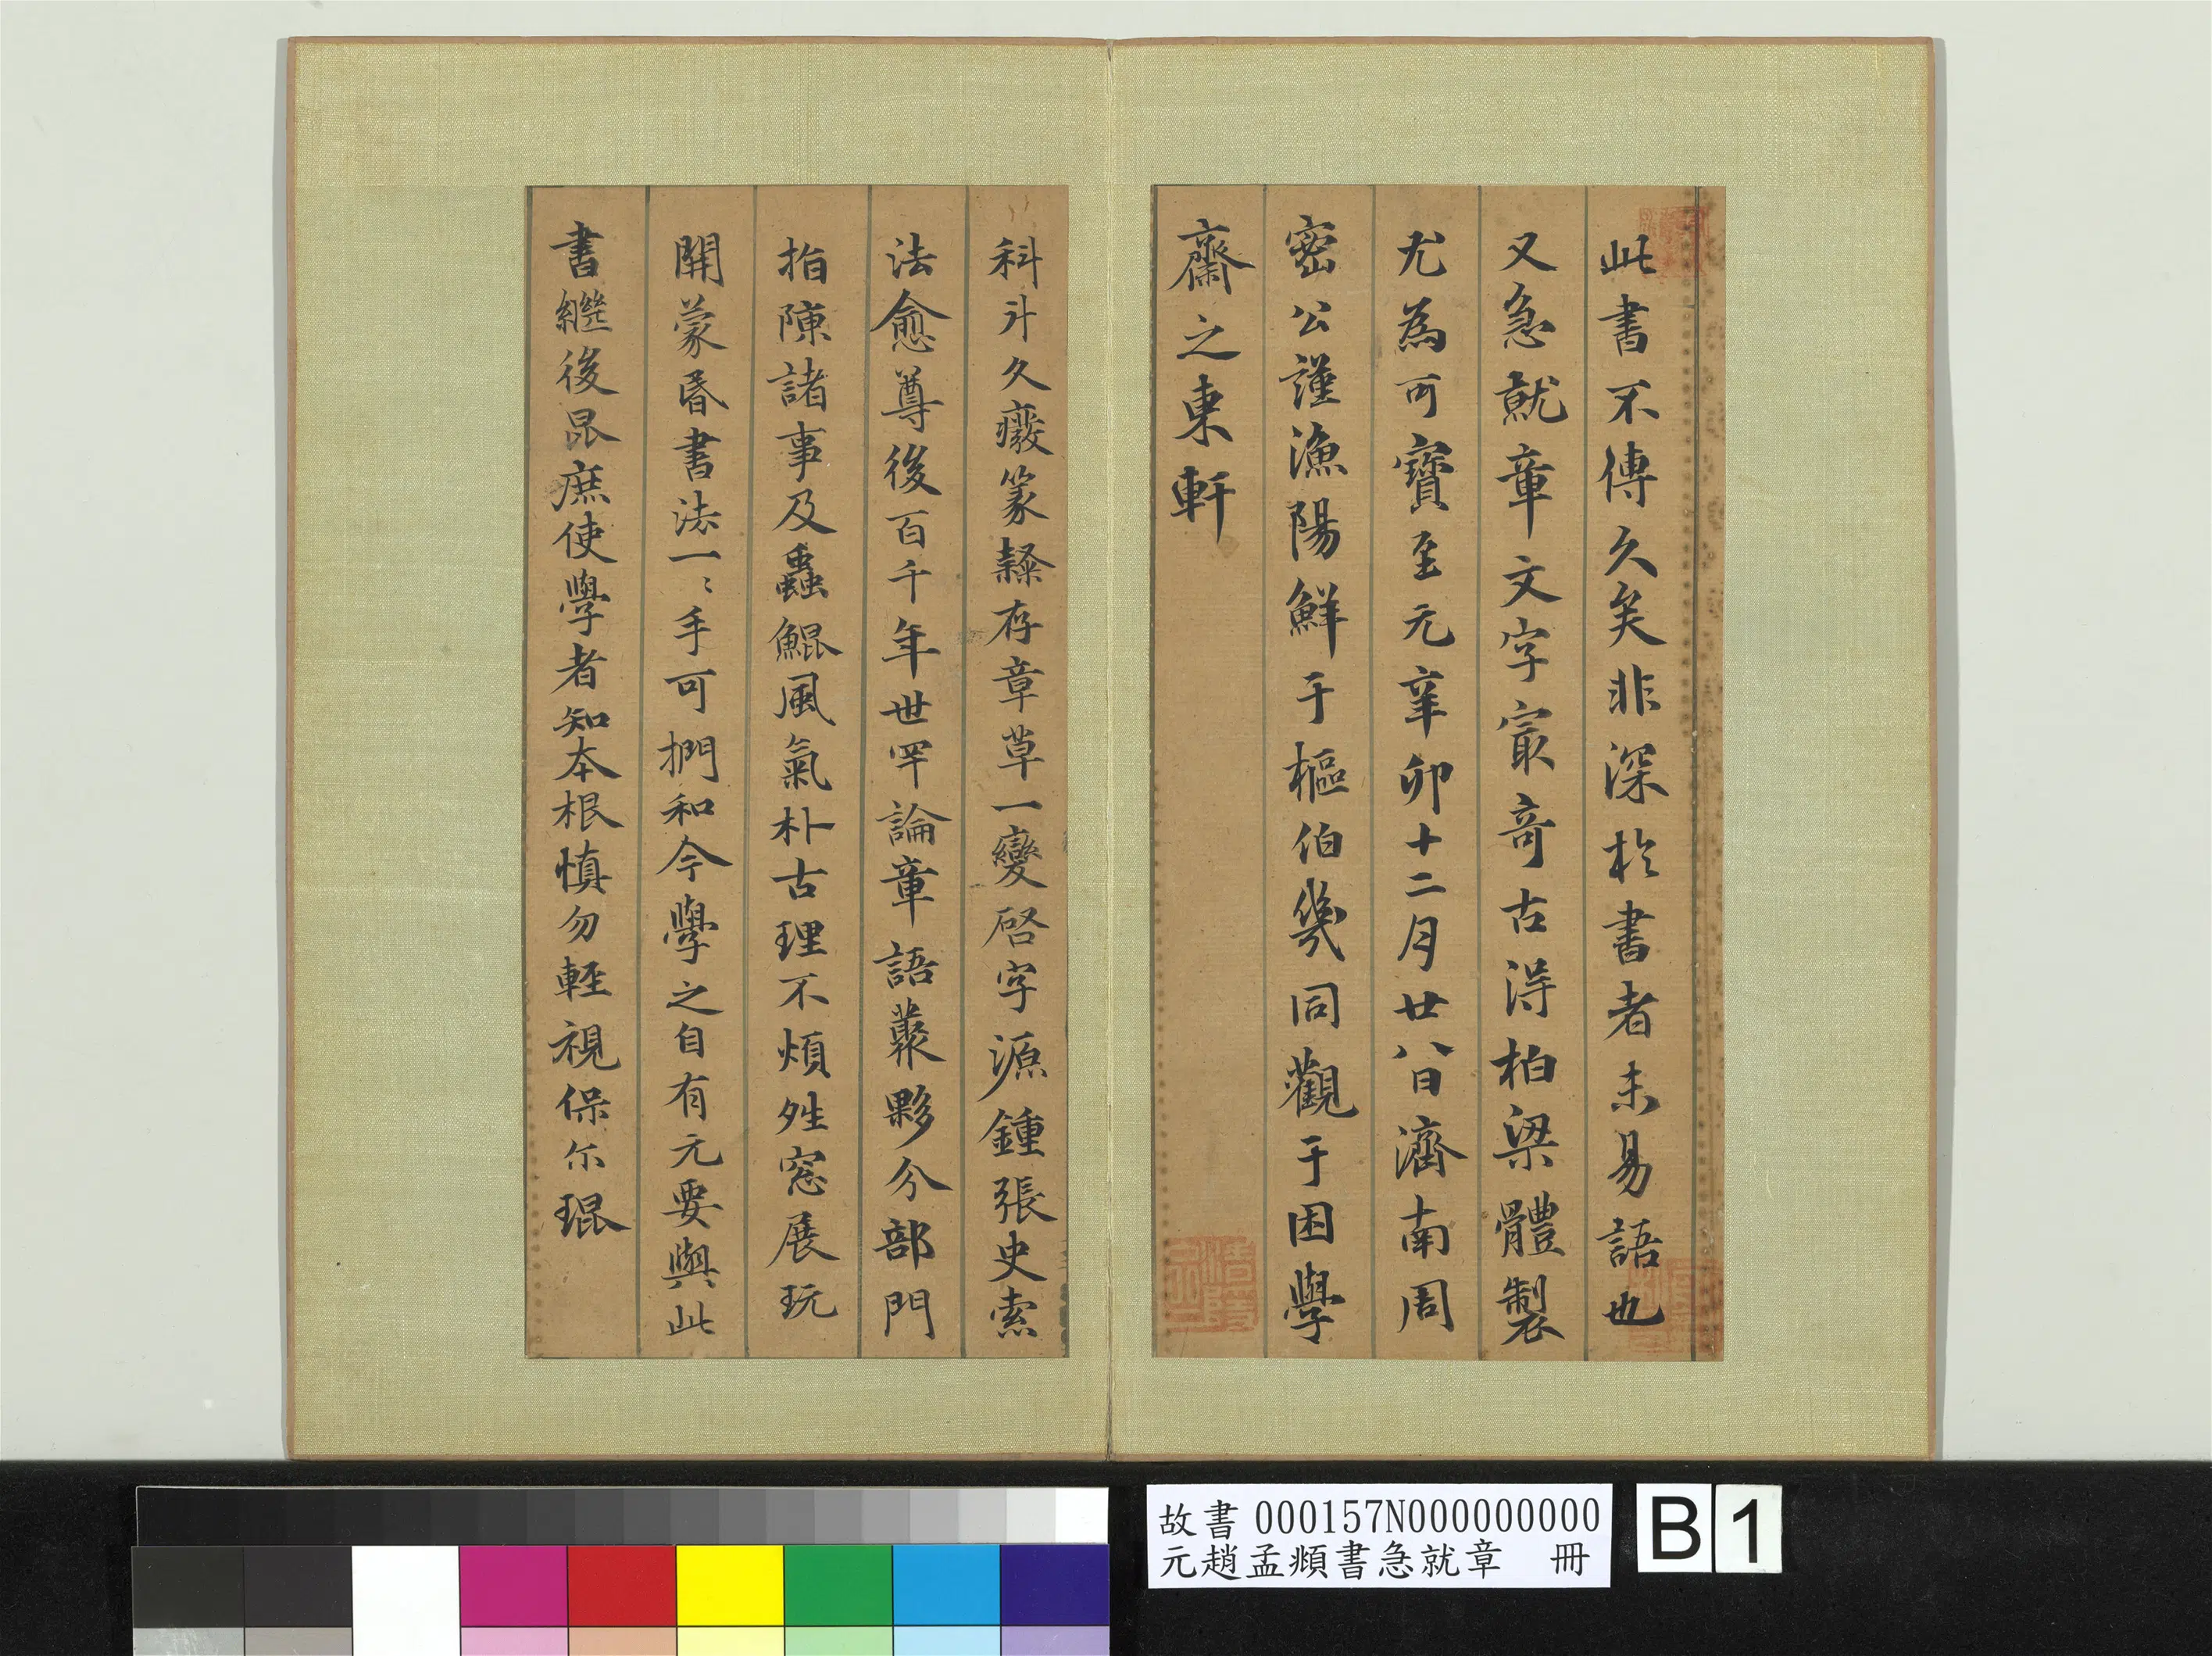 此書不傳久矣非深於書者未易語也
又急就章文字冣奇古得柏梁體製
尤為可寶至元辛卯十二月廿八日濟南周
密公謹漁陽鮮于樞伯幾同觀于困學
齋之東軒
科斗久癈篆隸存章草一變啓字源鍾張史索
法愈尊後百千年世罕論章語叢夥分部門
指陳諸事及蟲鯤風氣朴古理不煩姓窓展玩
開蒙昏書法一〻手可捫和今學之自有元要與此
書繼後昆庶使學者知本根慎勿輕視保尓琨
故書 000157N000000000
元趙孟頫書急就章 冊
B 1